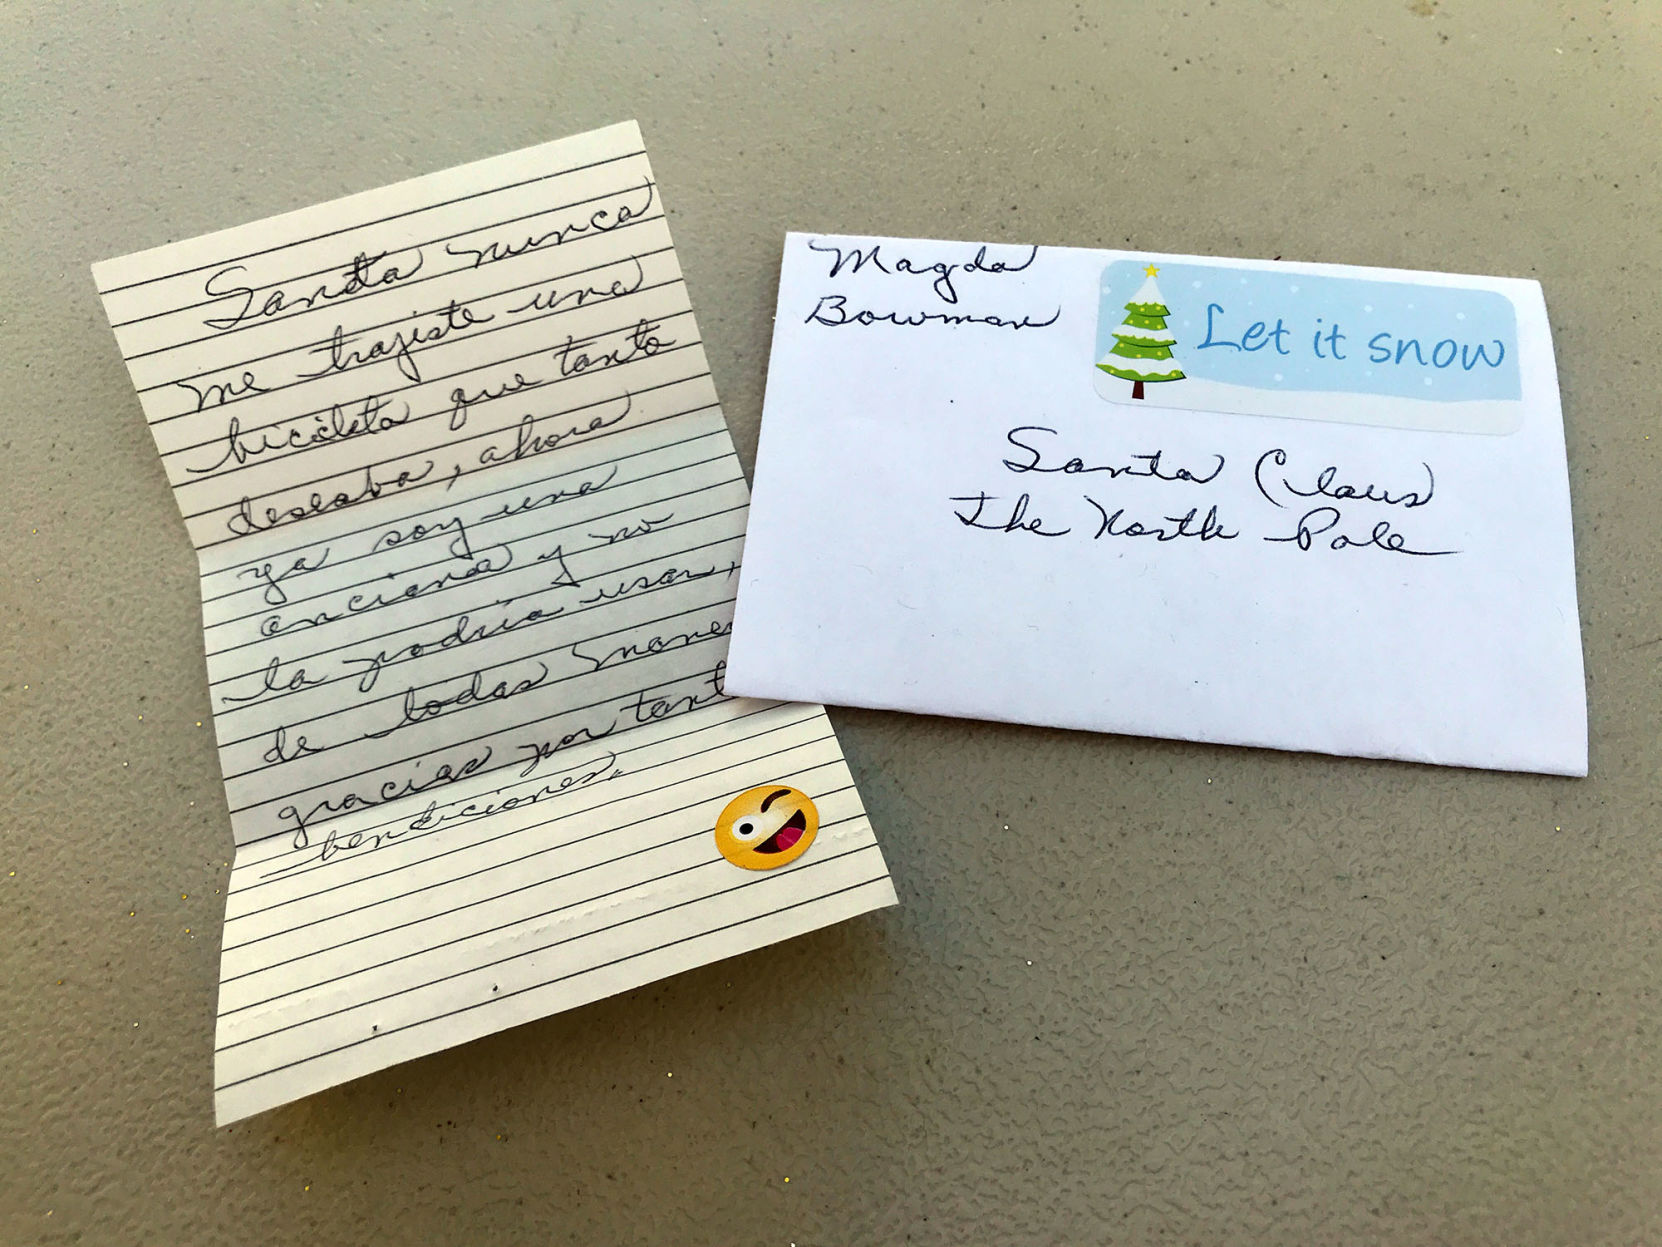 Santa nunca
me trajiste una
bicicleta que tanto
deseaba, ahora
ya soy una
anciana y no
la podría usar,
de todas maner
gracias por tant
bendiciones.
Magda
Bowman
Let it snow
Santa Claus
The North Pole